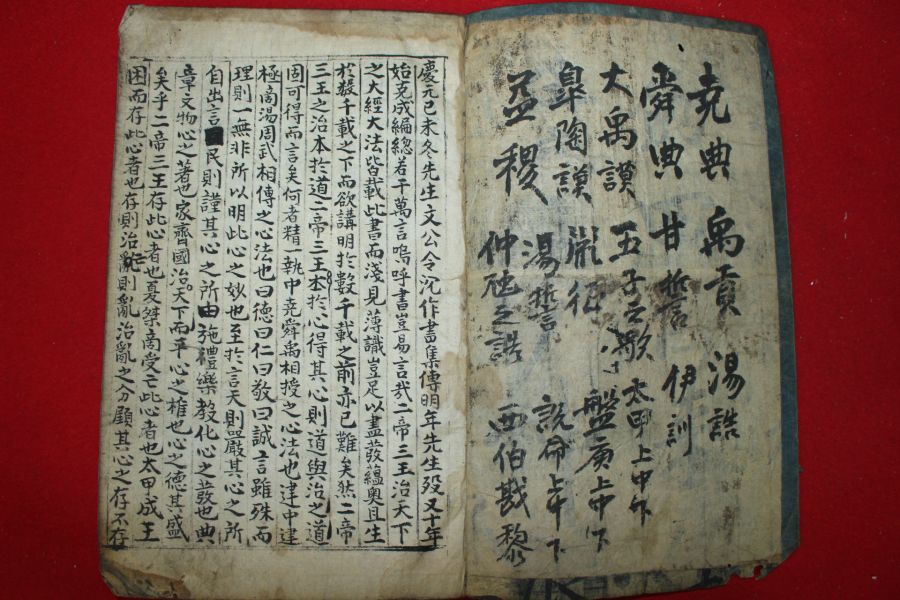 堯典 禹貢 湯誥
舜典 甘誓 伊訓
大禹謨 五子之歌 太甲上中下
皐陶謨 胤征 盤庚上中下
益稷 湯誓 說命上中下
仲虺之誥 西伯戡黎
慶元己未冬先生文公令沈作書集傳明年先生歿又十年
始克成編總若干萬言嗚呼書豈易言哉二帝三王治天下
之大經大法皆載此書而淺見薄識豈足以盡發蘊奧且生
於數千載之下而欲講明於數千載之前亦已難矣然二帝
三王之治本於道二帝三王本於心得其心則道與治之道
固可得而言矣何者精一執中堯舜禹相授之心法也建中建
極商湯周武相傳之心法也曰德曰仁曰敬曰誠言雖殊而
理則一無非所以明此心之妙也至於言天則嚴其心之所
自出言民則謹其心之所由施禮樂教化心之發也典
章文物心之著也家齊國治天下而平心之推也心之德其盛
矣乎二帝三王存此心者也夏桀商受亡此心者也太甲成王
困而存此心者也存則治亡則亂治亂之分顧其心之存不存